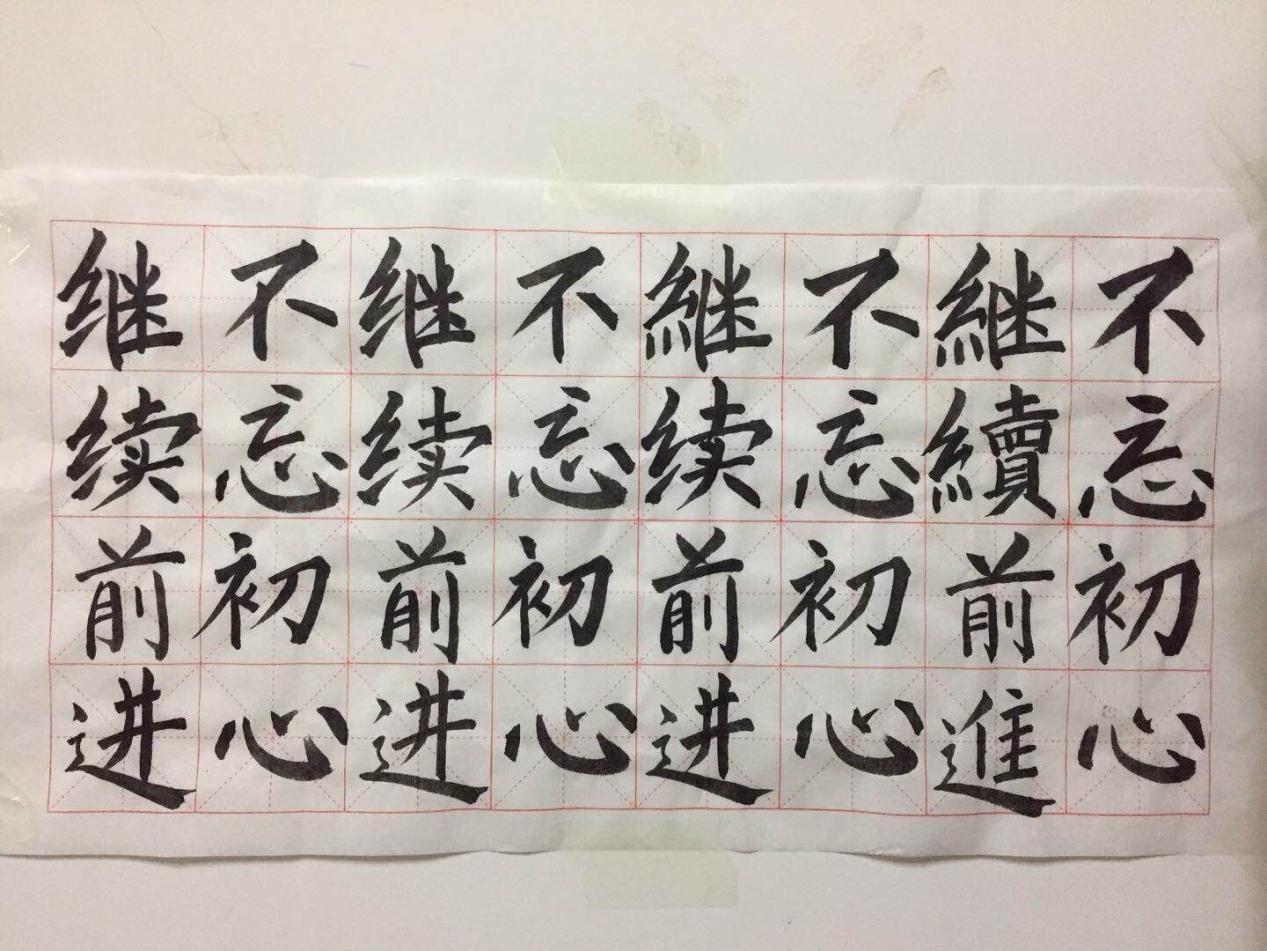 不忘初心
継續前進
不忘初心
継续前进
不忘初心
继续前进
不忘初心
继续前进